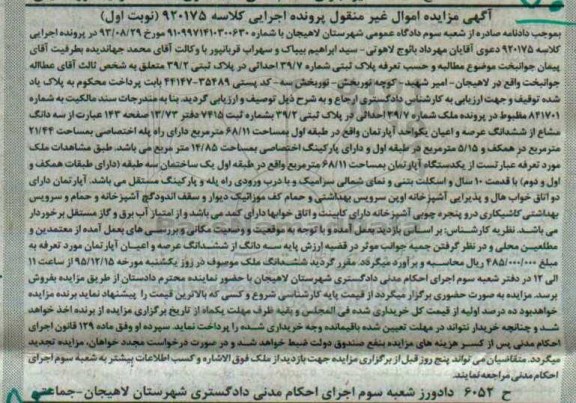 آگهی مزایده اموال غیر منقول پرونده اجرایی کلاسه ۹۲۰۱۷۵ (نوبت اول)
بموجب دادنامه صادره از شعبه سوم دادگاه عمومی شهرستان لاهیجان با شماره ۹۱۰۹۹۷۱۴۱۰۳۰۰۶۳۰ مورخ ۹۳/۰۸/۲۹ در پرونده اجرایی
کلاسه ۹۲۰۱۷۵ دعوی آقایان مهرداد بالوج لاهوتی - سید ابراهیم بیباک و سهراب قربانپور با وکالت آقای محمد جهاندیده بطرفیت آقای
پیمان جوانبخت موضوع مطالبه و حسب تعرفه پلاک ثبتی شماره ۳۹/۷ احداثی در پلاک ثبتی ۳۹/۲ متعلق به شخص ثالث آقای عطااله
جوانبخت واقع در لاهیجان- امیر شهید - کوچه نوربخش - نوربخش سه - کد پستی ۳۵۴۸۹-۴۴۱۴۷ بابت پرداخت محکوم به پلاک یاد
شده توقیف و جهت ارزیابی به کارشناس دادگستری ارجاع و به شرح ذیل توصیف و ارزیابی گردید. بنا به مندرجات سند مالکیت به شماره
۸۲۱۷۰۱ مظبوط در پرونده ملک شماره ۳۹/۷ احداثی در پلاک ثبتی ۳۹/۲ بشماره ثبت ۷۴۱۵ دفتر ۱۳/۷۳ صفحه ۱۴۳ عبارت از سه دانگ
مشاع از ششدانگ عرصه و اعیان یکواحد آپارتمان واقع در طبقه اول بمساحت ۶۸/۱۱ مترمربع دارای راه پله اختصاصی بمساحت ۲۱/۴۴
مترمربع در همکف و ۵/۱۵ مترمربع در طبقه اول و دارای پارکینگ اختصاصی بمساحت ۱۴/۸۵ متر مربع می باشد. طبق مشاهدات ملک
مورد تعرفه عبارتست از یکدستگاه آپارتمان بمساحت ۶۸/۱۱ مترمربع واقع در طبقه اول یک ساختمان سه طبقه (دارای طبقات همکف و
اول و دوم) با قدمت ۱۰ سال و اسکلت بتنی و نمای شمالی سرامیک و با درب ورودی راه پله و پارکینگ مستقل می باشد. آپارتمان دارای
دو اتاق خواب هال و پذیرایی آشپزخانه اوپن سرویس بهداشتی و حمام کف موزائیک دیوار و سقف اندودگچ آشپزخانه و حمام و سرویس
بهداشتی کاشیکاری در و پنجره چوبی آشپزخانه دارای کابینت و اتاق خوابها دارای کمد می باشد و از امتیاز آب برق و گاز مستقل برخوردار
می باشد. نظریه کارشناس: بر اساس بازدید بعمل آمده و با توجه به موقعیت و وضعیت مکانی و بررسی های بعمل آمده از معتمدین و
مطلعین محلی و در نظر گرفتن جمیه جوانب موثر در قضیه ارزش پایه سه دانگ از ششدانگ عرصه و اعیان آپارتمان مورد تعرفه به
مبلغ ۴۸۵/۰۰۰/۰۰۰ ریال محاسبه و برآورد میگردد. مقرر گردید ششدانگ ملک موصوف در روز یکشنبه مورخه ۹۵/۱۲/۱۵ از ساعت ۱۱
الی ۱۲ در دفتر شعبه سوم اجرای احکام مدنی دادگستری شهرستان لاهیجان با حضور نماینده محترم دادستان از طریق مزایده بفروش
برسد. مزایده به صورت حضوری برگزار میگردد از قیمت پایه کارشناسی شروع و کسی که بالاترین قیمت را پیشنهاد نماید برنده مزایده
خواهد بود ده درصد اولیه از قیمت کل خریداری شده فی المجلس و بقیه ظرف مهلت یکماه از تاریخ برگزاری مزایده از برنده اخذ خواهد
شد و چنانچه خریدار نتواند در مهلت تعیین شده باقیمانده وجه خریداری شده را پرداخت نماید. سپرده او وفق ماده ۱۲۹ قانون اجرای
احکام مدنی پس از کسر هزینه های مزایده بنفع صندوق دولت ضبط خواهد شد و در صورت درخواست مجدد خواهان، مزایده تجدید
میگردد. متقاضیان می تواند پنج روز قبل از برگزاری مزایده جهت بازدید از ملک فوق الاشاره و کسب اطلاعات بیشتر به شعبه سوم اجرای
احکام مدنی مراجعه نمایند.
ح ۶۰۵۲ دادورز شعبه سوم اجرای احکام مدنی دادگستری شهرستان لاهیجان - جماعتی